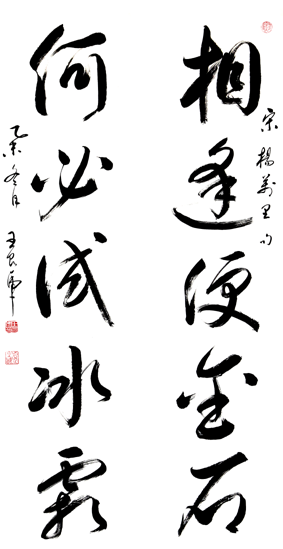 宋楊萬里句
相逢便金石
何必试冰霜
乙未冬月王良虎